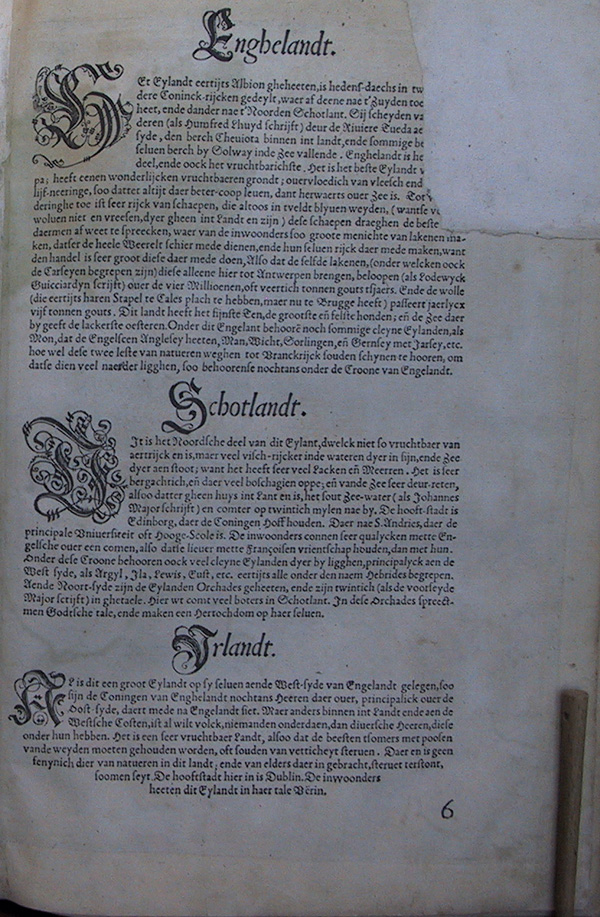 Enghelandt.
HEt Eylandt eertijts Albion gheheeten, is hedens-daechs in tw
dere Coninck-rijcken gedeylt, waer af deene nae t'Zuyden toe
heet, ende dander nae t'Noorden Schotlant. Sij scheyden va
deren (als Humfred Lhuyd schrijft) deur de Riuiere Tueda ae
syde, den berch Cheuiota binnen int landt, ende sommige be
seluen berch by Solway inde Zee vallende. Enghelandt is he
deel, ende oock het vruchtbarichste. Het is het beste Eylandt v
pa; heeft eenen wonderlijcken vruchtbaeren grondt; ouervloedich van vleesch end
lijf-neeringe, soo dattet altijt daer beter-coop leuen, dant herwaerts ouer Zee is. Tot
deringhe toe ist seer rijck van schaepen, die altoos in tveldt blyuen weyden, (wantse v
woluen niet en vreesen, dyer gheen int Landt en zijn) dese schaepen draeghen de beste
daermen af weet te spreecken, waer van de inwoonders soo groote menichte van lakenen ma-
ken, datser de heele Weerelt schier mede dienen, ende hun seluen rijck daer mede maken, want
den handel is seer groot diese daer mede doen, Also dat de selfde lakenen, (onder welcken oock
de Carseyen begrepen zijn) diese alleene hier tot Antwerpen brengen, beloopen (als Lodewyck
Guicciardyn scrijft) ouer de vier Millioenen, oft veertich tonnen gouts tsjaers. Ende de wolle
(die eertijts haren Stapel te Cales plach te hebben, maer nu te Brugge heeft) passeert jaerlycx
vijf tonnen gouts. Dit landt heeft het fijnste Ten, de grootste eñ felste honden; eñ de Zee daer
by geeft de lackerste oesteren. Onder dit Engelant behoorē noch sommige cleyne Eylanden, als
Mon, dat de Engelseen Anglesey heeten, Man, Wicht, Sorlingen, eñ Gernsey met Jarsey, etc.
hoe wel dese twee leste van natueren weghen tot Vranckrijck souden schynen te hooren, om
datse dien veel naerder ligghen, soo behoorense nochtans onder de Croone van Engelandt.
Schotlandt.
DIt is het Noordsche deel van dit Eylant, dwelck niet so vruchtbaer van
aertrijck en is, maer veel visch-rijcker inde wateren dyer in sijn, ende Zee
dyer aen stoot; want het heeft seer veel Lacken eñ Meerren. Het is seer
bergachtich, eñ daer veel boschagien oppe; eñ vande Zee seer deur-reten,
alsoo datter gheen huys int Lant en is, het sout Zee-water (als Johannes
Major schrijft) en comter op twintich mylen nae by. De hooft-stadt is
Edinborg, daer de Coningen Hoff houden. Daer nae S. Andries, daer de
principale Vniuersiteit oft Hooge-Scole is. De inwoonders connen seer qualycken mette En-
gelsche ouer een comen, also datse lieuer mette Françoisen vrientschap houden, dan met hun.
Onder dese Croone behooren oock veel cleyne Eylanden dyer by ligghen, principalyck aen de
West syde, als Argyl, Jla, Lewis, Eust, etc. eertijts alle onder den naem Hebrides begrepen.
Aende Noort-syde zijn de Eylanden Orchades geheeten, ende zijn twintich (als de voorseyde
Major scrijft) in ghetaele. Hier wt comt veel boters in Schotlant. In dese Orchades spreeckt-
men Godtsche tale, ende maken een Hertochdom op haer seluen.
Jrlandt.
AL is dit een groot Eylandt op sy seluen aende West-syde van Engelandt gelegen, soo
sijn de Coningen van Enghelandt nochtans Heeren daer ouer, principalick ouer de
Oost-syde, daert mede na Engelandt siet. Maer anders binnen int Landt ende aen de
Westsche Costen, ist al wilt volck, niemanden onderdaen, dan diuersche Heeren, diese
onder hun hebben. Het is een seer vruchtbaer Landt, alsoo dat de beesten tsomers met poosen
vande weyden moeten gehouden worden, oft souden van vetticheyt steruen. Daer en is geen
fenynich dier van natueren in dit landt; ende van elders daer in gebracht, steruet terstont,
soomen seyt. De hooftstadt hier in is Dublin. De inwoonders
heeten dit Eylandt in haer tale Vērin.
6